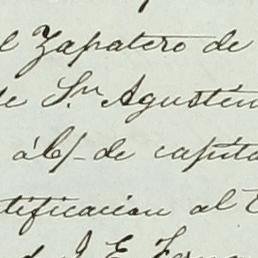 l Zapatero de
de Sn Agustin
á 6/- de capita
tificacion al
J. E. Ferna